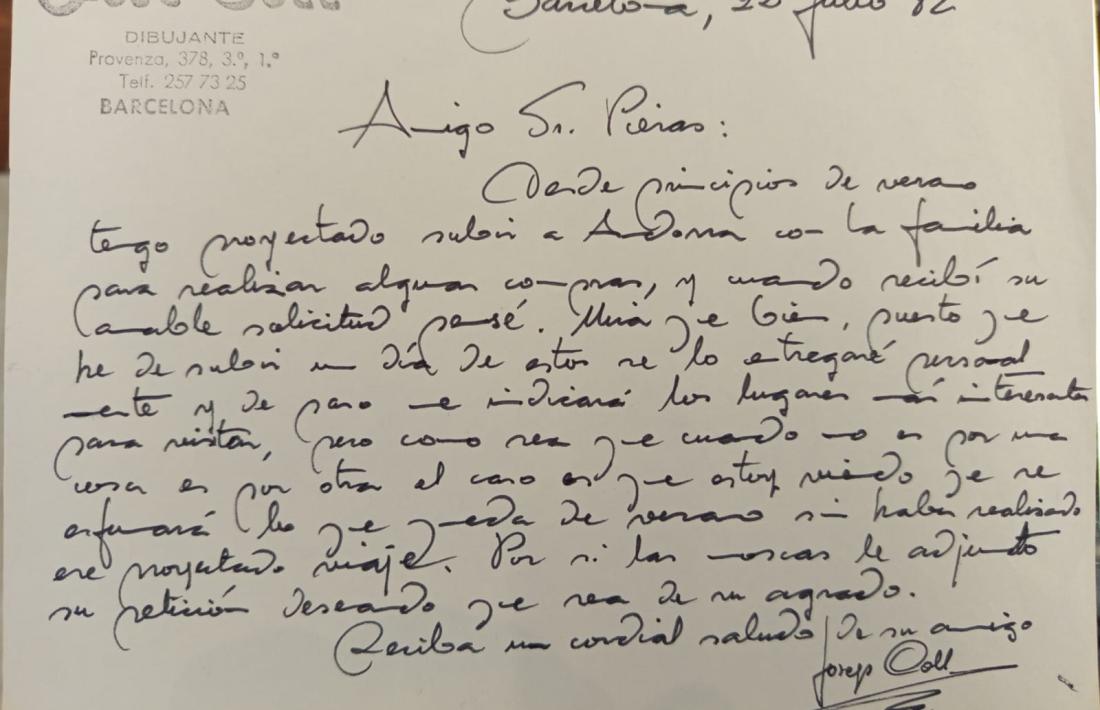 DIBUJANTE
Provenza, 378, 3.º, 1.ª
Telf. 257 73 25
BARCELONA
Barcelona, 20 julio 82
Amigo Sr. Pieras:
Desde principios de verano
tengo proyectado subir a Andorra con la familia
para realizar algunas compras, y cuando recibí su
amable solicitud pensé. Mira que bien, puesto que
he de subir un día de estos se lo entregaré personal
mente y de paso me indicará los lugares más interesantes
para visitar, pero como sea que cuando no es por una
cosa es por otra el caso es que estoy viendo que se
esfumará lo que queda de verano sin haber realizado
ese proyectado viaje. Por si las moscas le adjunto
su petición deseando que sea de su agrado.
Reciba un cordial saludo de su amigo
Josep Coll